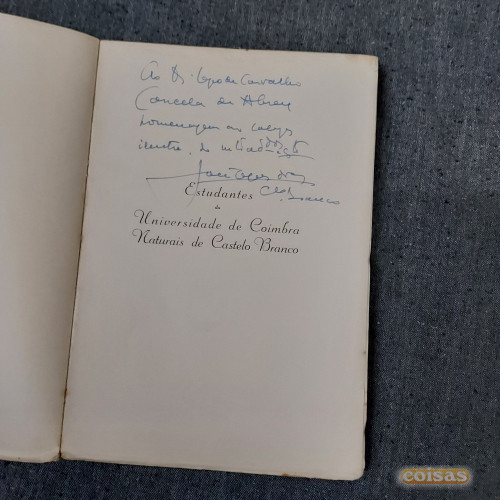 Ao Dr. Lopo de Carvalho
Cancela de Abreu
homenagem ao colega
ilustre, do
José Lopes Dias
C. Branco
Estudantes
da
Universidade de Coimbra
Naturais de Castelo Branco
coisas